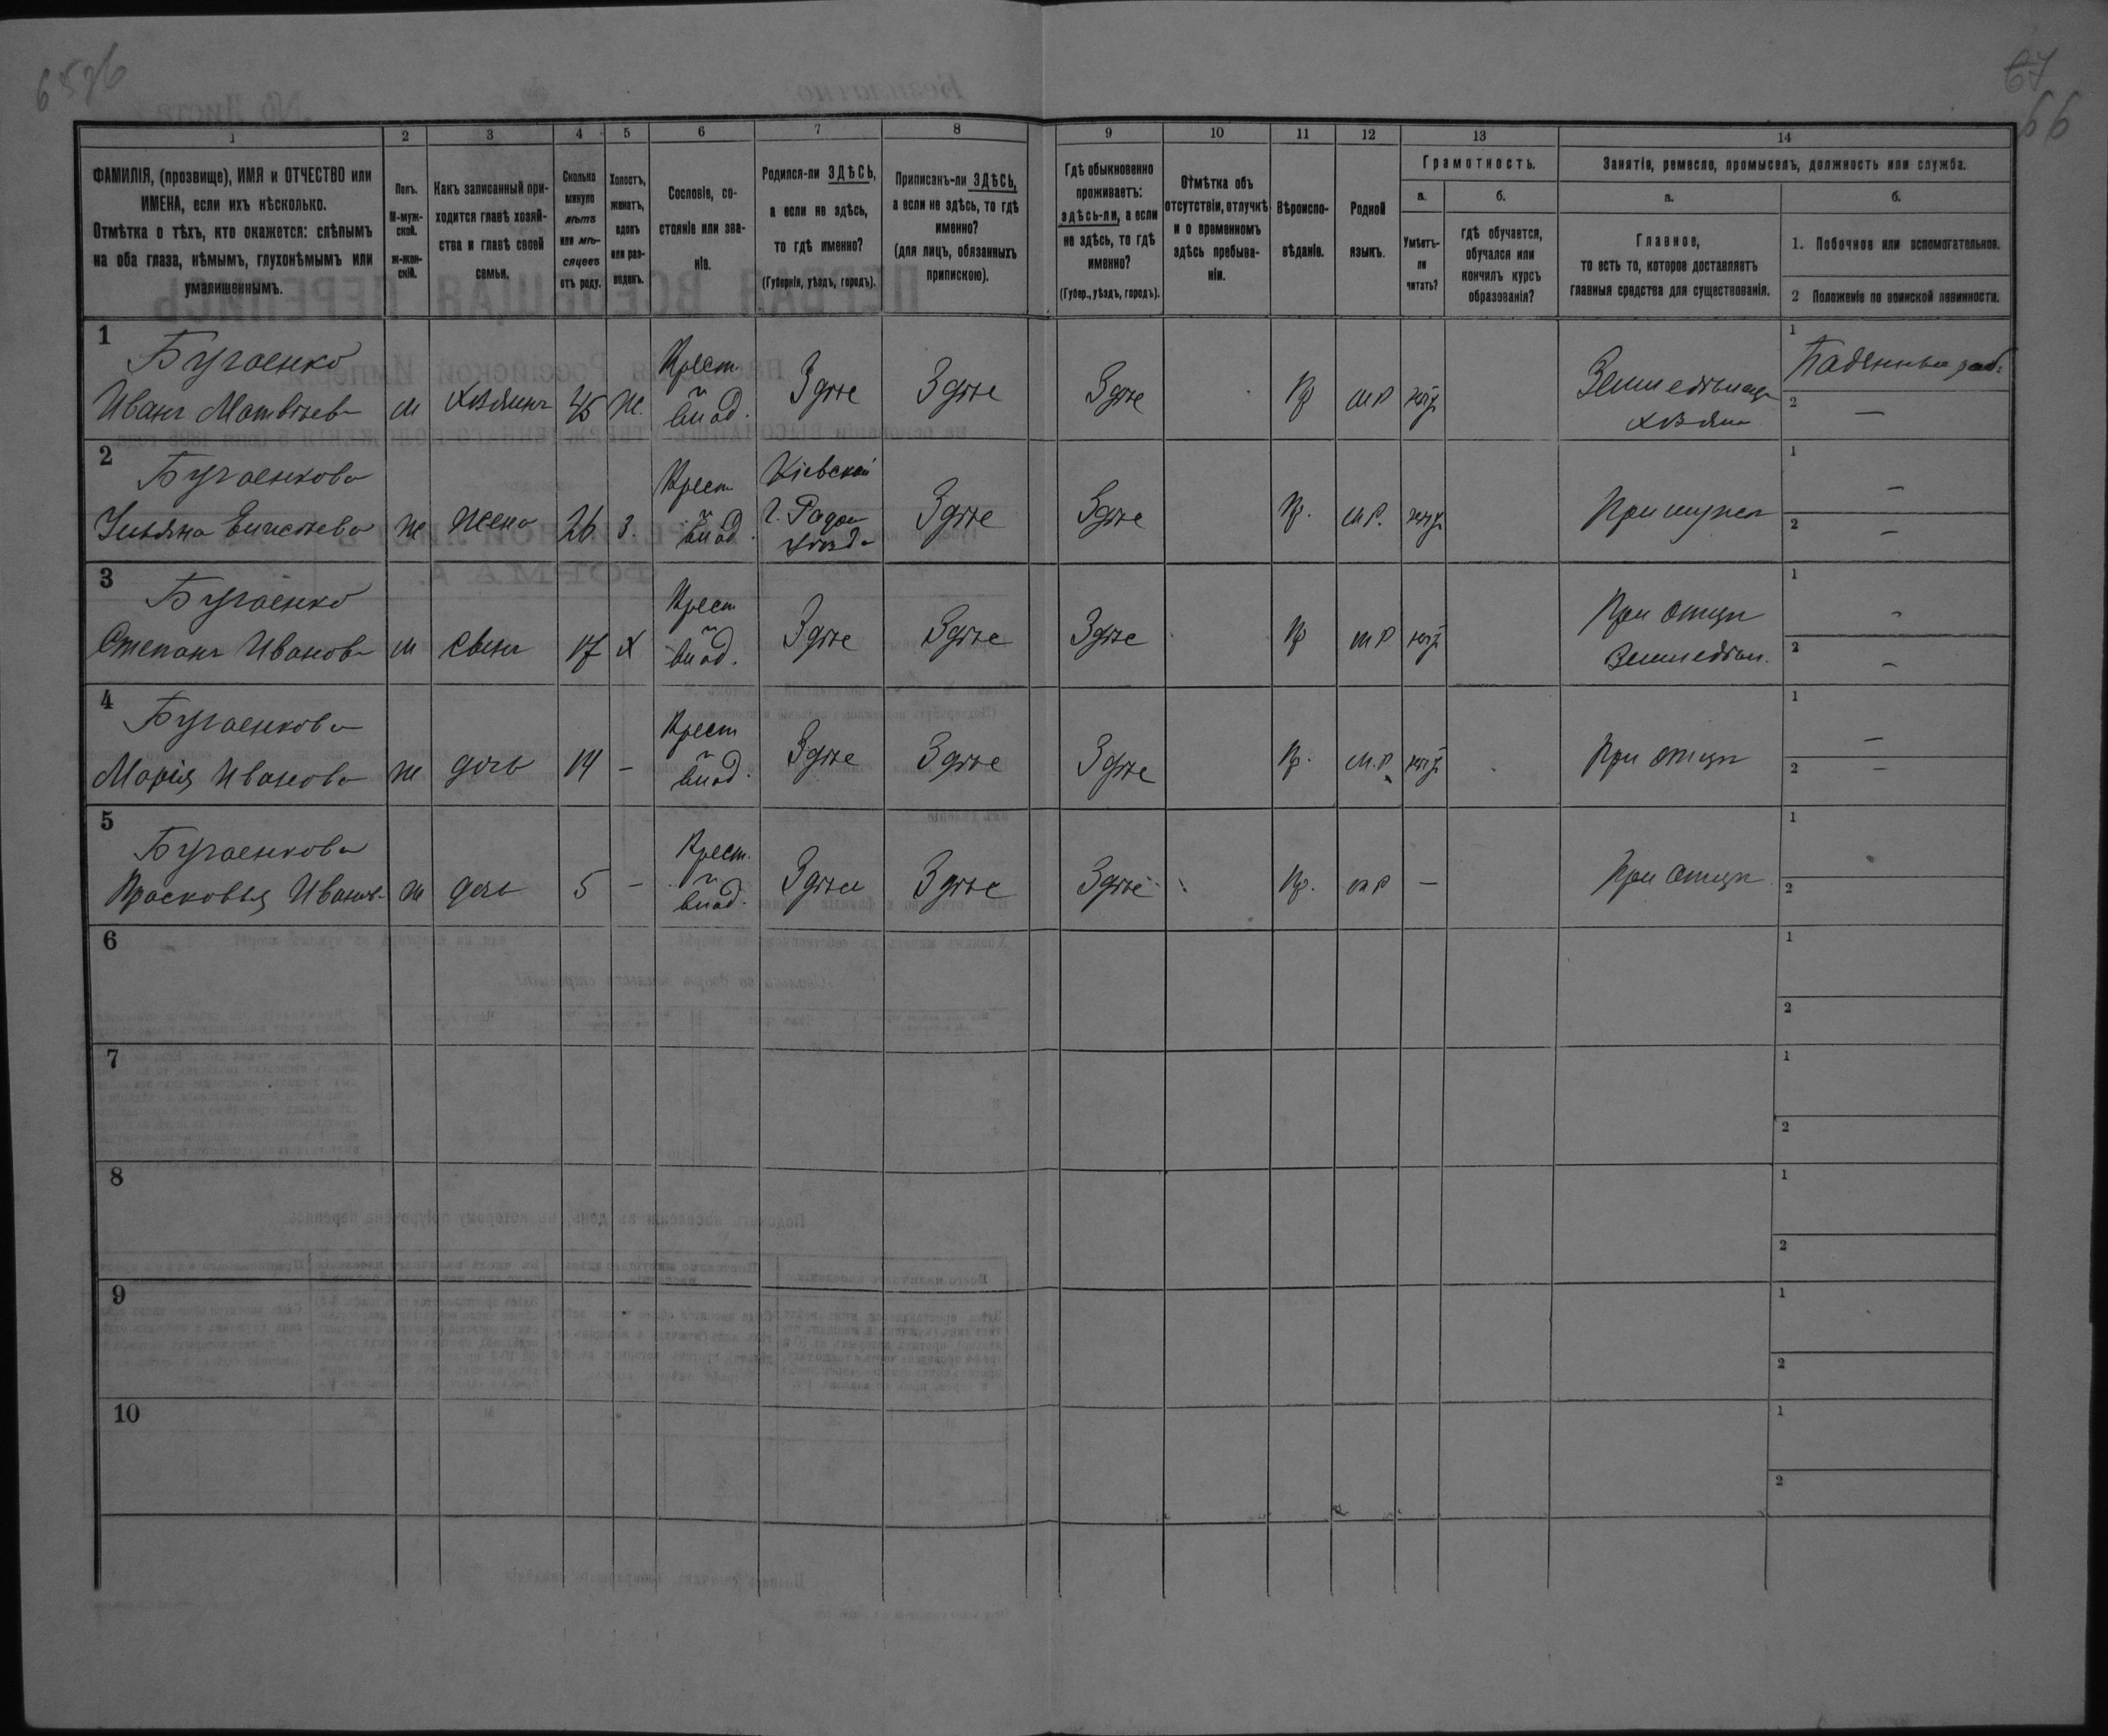 67
66
1 2 3 4 5 6 7 8 9 10 11 12 13 14
ФАМИЛІЯ, (прозвище), ИМЯ и ОТЧЕСТВО или
ИМЕНА, если ихъ нѣсколько.
Отмѣтка о тѣхъ, кто окажется: слѣпымъ
на оба глаза, нѣмымъ, глухонѣмымъ или
умалишеннымъ.
Полъ.
М-муж-
ской.
ж-жен-
скій.
Какъ записанный при-
ходится главѣ хозяй-
ства и главѣ своей
семьи.
Сколько
минуло
лѣтъ
или мѣ-
сяцевъ
отъ роду.
Холостъ,
женатъ,
вдовъ
или раз-
веденъ.
Сословіе, со-
стояніе или зва-
ніе.
Родился-ли ЗДѢСЬ,
а если не здѣсь,
то гдѣ именно?
(Губернія, уѣздъ, городъ).
Приписанъ-ли ЗДѢСЬ,
а если не здѣсь, то гдѣ
именно?
(для лицъ, обязанныхъ
припискою).
Гдѣ обыкновенно
проживаетъ:
здѣсь-ли, а если
не здѣсь, то гдѣ
именно?
(Губер., уѣздъ, городъ).
Отмѣтка объ
отсутствіи, отлучкѣ
и о временномъ
здѣсь пребыва-
ніи.
Вѣроиспо-
вѣданіе.
Родной
языкъ.
Грамотность.
а.
Умѣетъ-
ли
читать?
б.
гдѣ обучается,
обучался или
кончилъ курсъ
образованія?
Занятіе, ремесло, промыселъ, должность или служба.
а.
Главное,
то есть то, которое доставляетъ
главныя средства для существованія.
б.
1. Побочное или вспомогательное.
2 Положеніе по воинской повинности.
1
Бугаенко
Иванъ Матвѣев м Хозяинъ 45 Ж. Крест. и влад. Здѣсе Здѣсе Здѣсе Пр м р нѣт
хозяин
1
2 —
2
Бугаенкова
Ульяна Елисѣева ж жена 26 З. Крест и влад. Кіевской г. Здѣсе Здѣсе Пр. м р. нѣт При мужѣ
1 —
2 —
3
Бугаенко
Степанъ Иванов м сынъ 17 Х Крест и влад. Здѣсе Здѣсе Здѣсе Пр м р нѣт При отцѣ
Земледѣл.
1 -
2 —
4
Бугаенкова
Марія Иванова ж дочь 14 — Крест и влад. Здѣсе Здѣсе Здѣсе Пр. м. р нѣт При отцѣ
1 —
2 —
5
Бугаенкова
Прасковья Иванов ж дочь 5 — Крест. и влад. Здѣсе Здѣсе Здѣсе Пр. м р — При отцѣ
1
2
6
1
2
7
1
2
8
1
2
9
1
2
10
1
2